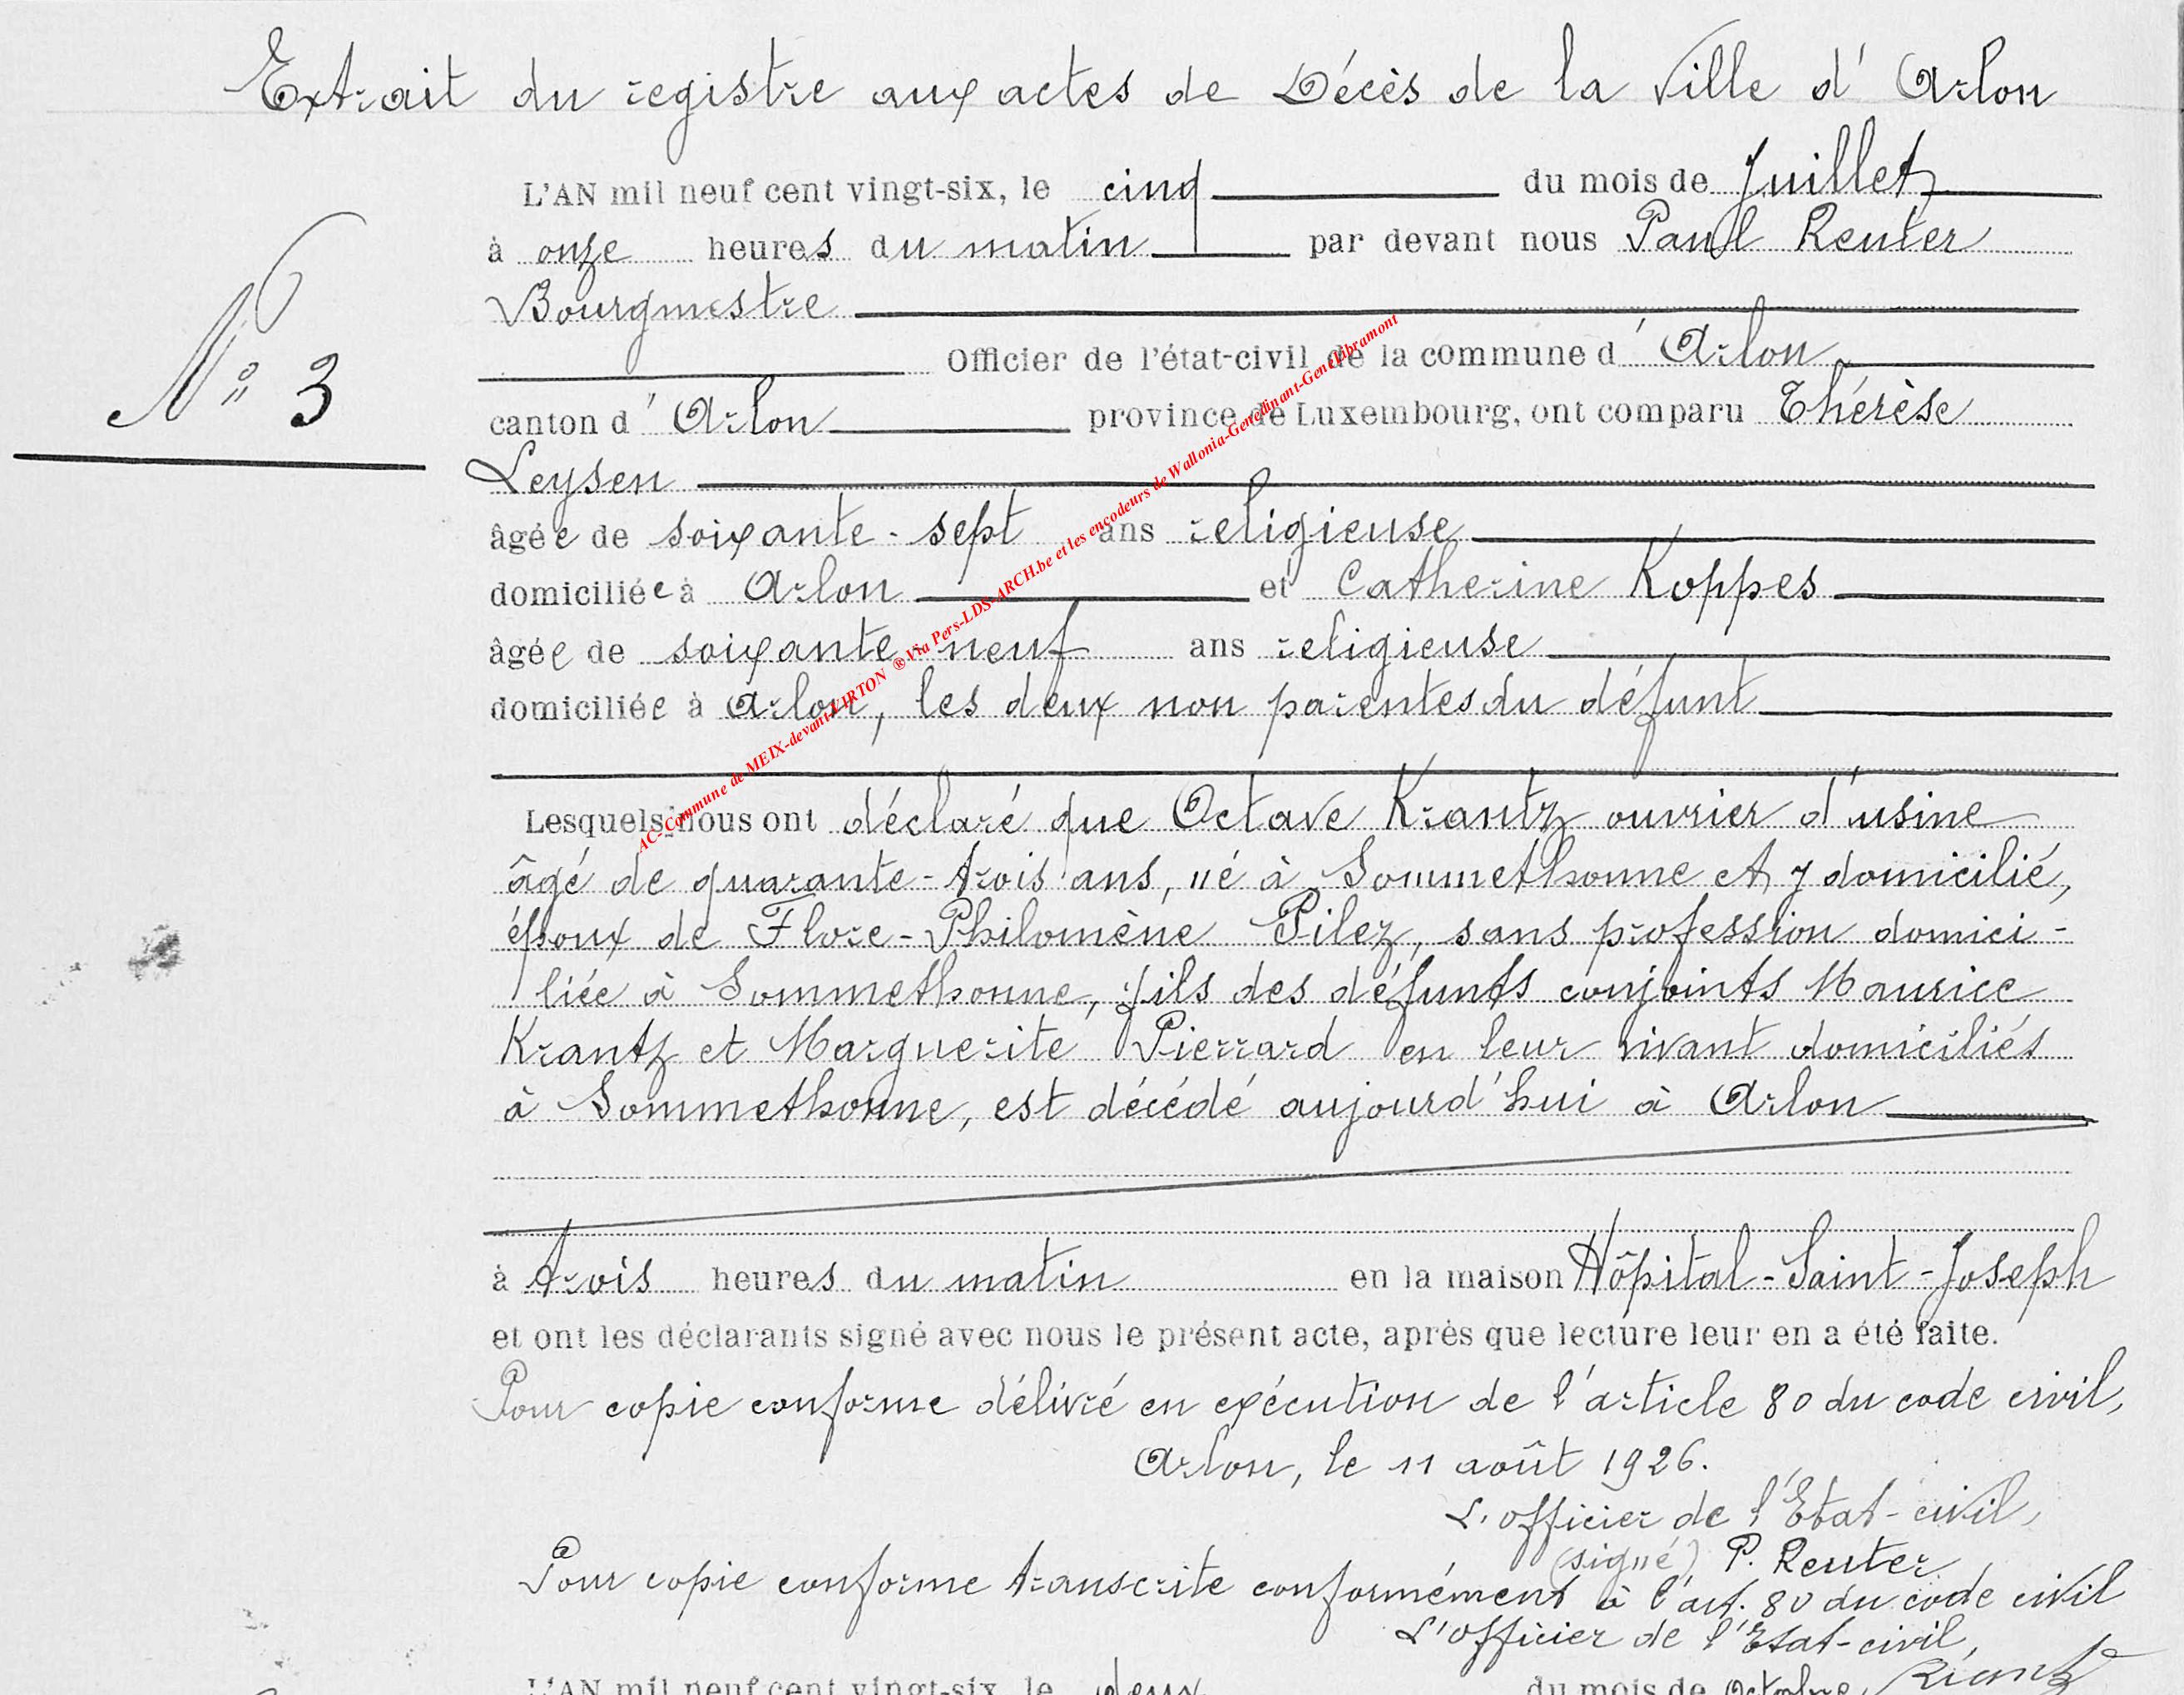 Extrait du registre aux actes de Décès de la Ville d'Arlon
L'AN mil neuf cent vingt-six, le cinq du mois de Juillet
à onze heures du matin par devant nous Paul Reuter
Bourgmestre
Officier de l'état-civil de la commune d'Arlon
N° 3
canton d'Arlon province de Luxembourg, ont comparu Thérèse
Leysen
âgée de soixante-sept ans religieuse
domiciliée à Arlon et Catherine Koppes
âgée de soixante neuf ans religieuse
domiciliée à Arlon, les deux non parentes du défunt
Lesquels nous ont déclaré que Octave Krantz ouvrier d'usine
âgé de quarante-trois ans, né à Sommethonne et y domicilié,
époux de Flore-Philomène Pilez, sans profession domici-
liée à Sommethonne, fils des défunts conjoints Maurice
Krantz et Marguerite Pierrard en leur vivant domiciliés
à Sommethonne, est décédé aujourd'hui à Arlon
à trois heures du matin en la maison Hôpital-Saint-Joseph
et ont les déclarants signé avec nous le présent acte, après que lecture leur en a été faite.
Pour copie conforme délivré en exécution de l'article 80 du code civil,
Arlon, le 11 août 1926.
L'officier de l'Etat-civil,
(signé) P. Reuter
Pour copie conforme transcrite conformément à l'art. 80 du code civil
L'officier de l'Etat-civil,
L'AN mil neuf cent vingt-six, le deux du mois de Octobre
AC-Commune de MEIX-devant-VIRTON ® Via Pers-LDS-ARCH.be et les encodeurs de Wallonia-Genedinant-GeneLibramont